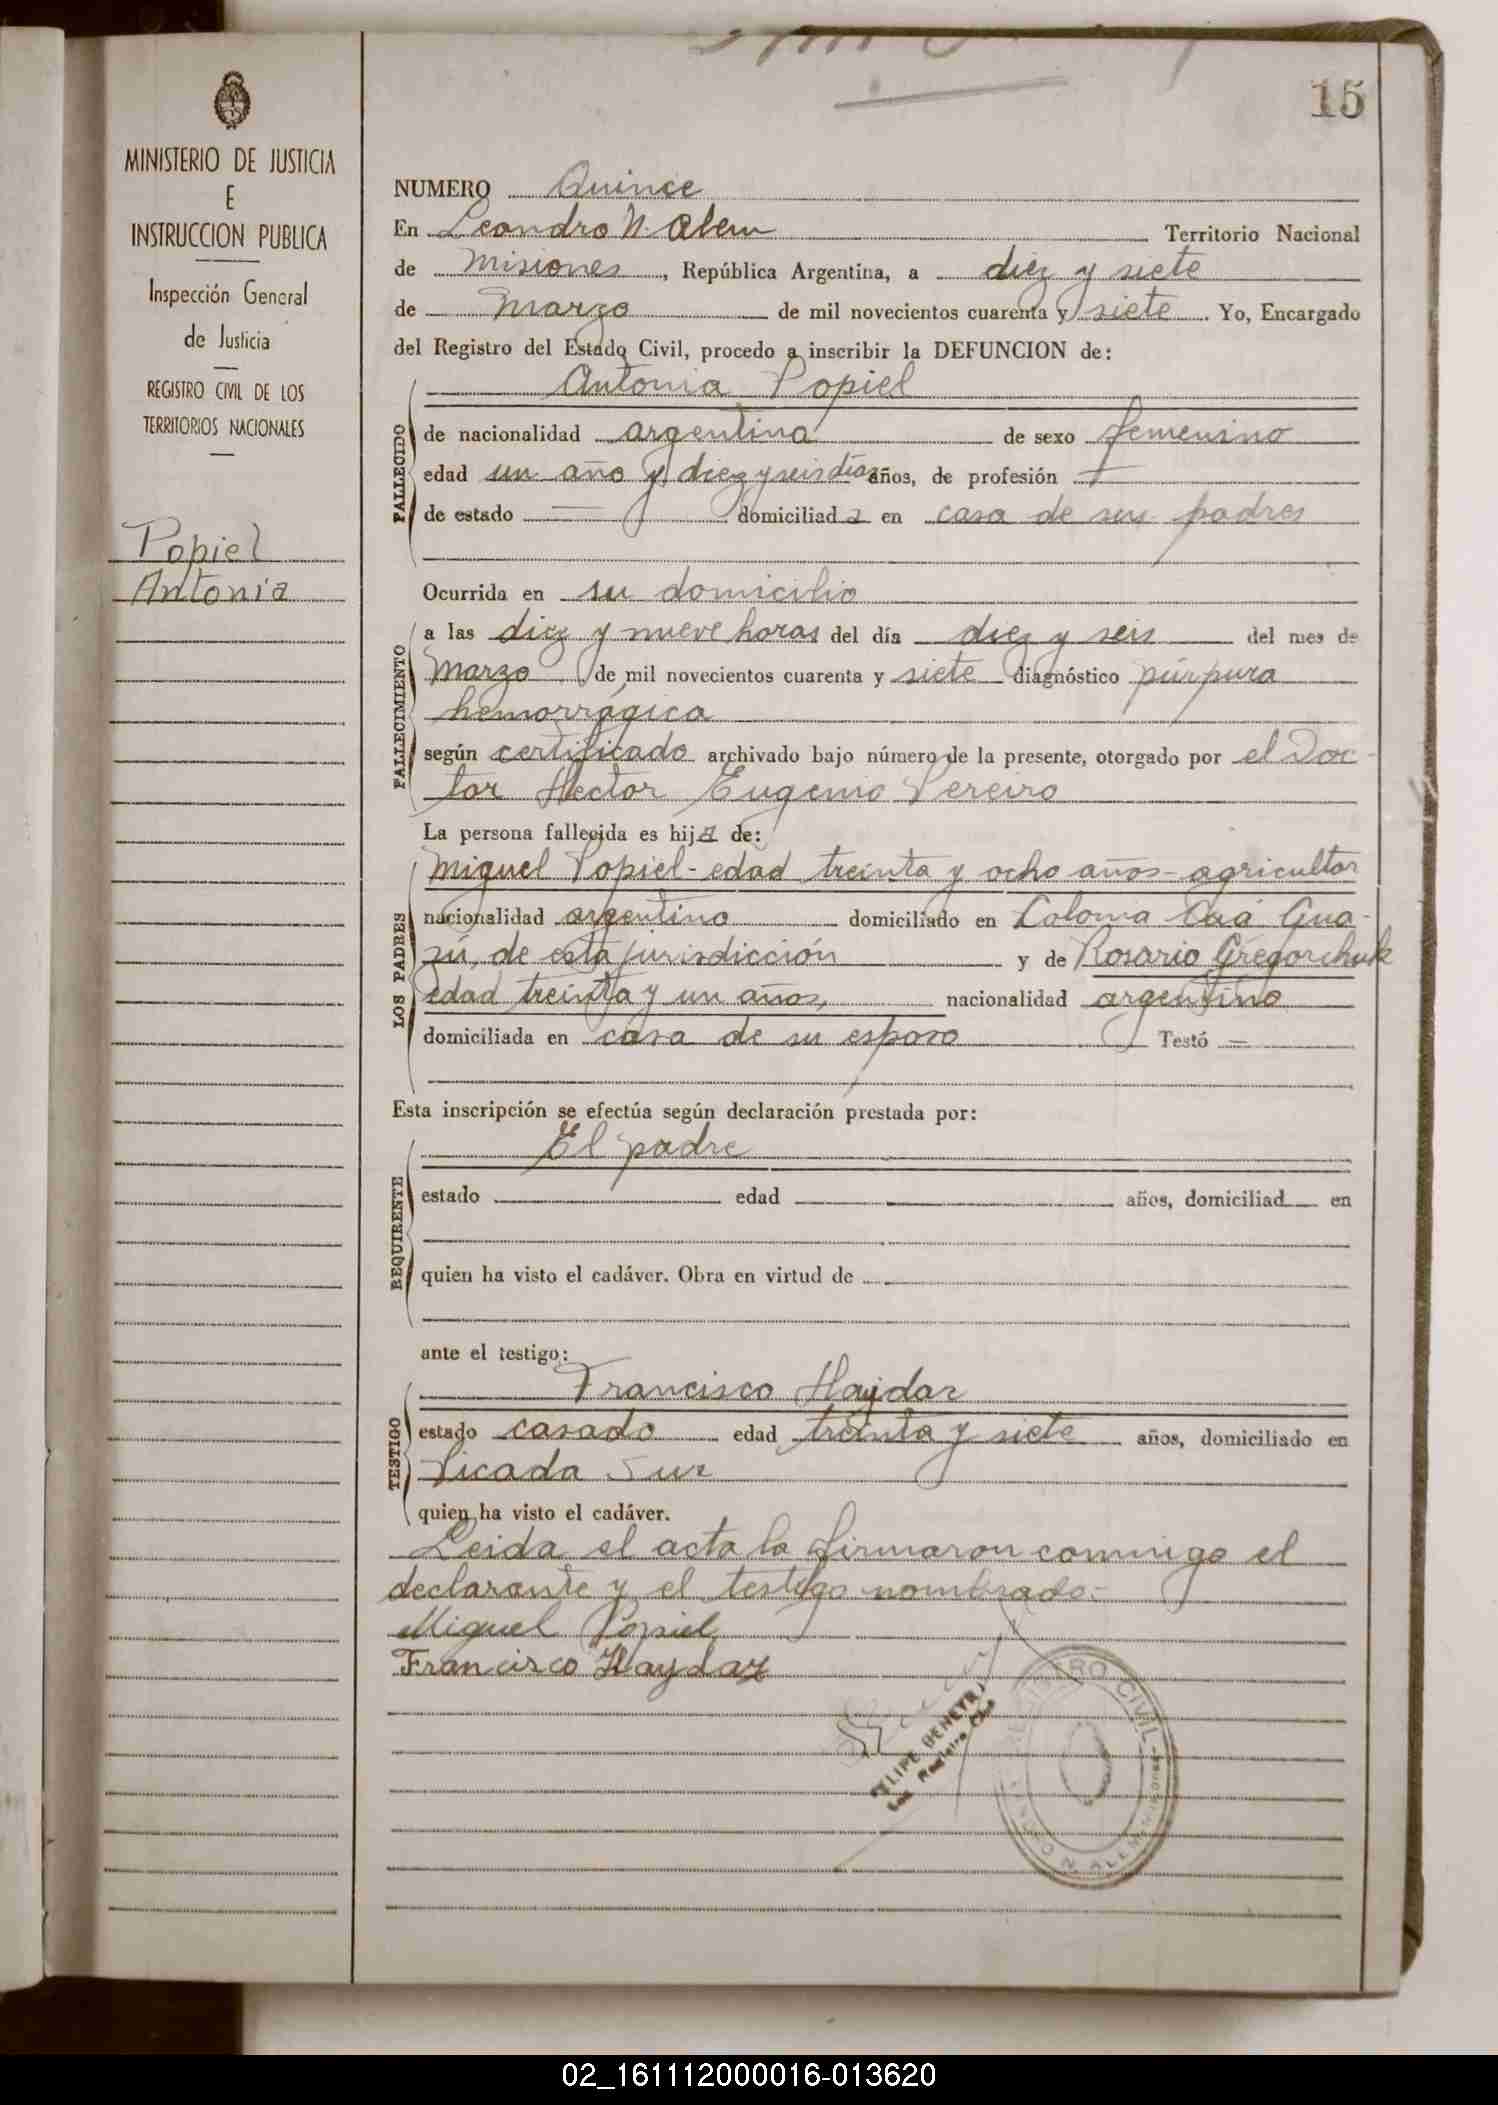 15
MINISTERIO DE JUSTICIA
E
INSTRUCCION PUBLICA
Inspección General
de Justicia
REGISTRO CIVIL DE LOS
TERRITORIOS NACIONALES
Popiel
Antonia
NUMERO Quince
En Leandro N. Alem Territorio Nacional
de Misiones, República Argentina, a diez y siete
de Marzo de mil novecientos cuarenta y siete. Yo, Encargado
del Registro del Estado Civil, procedo a inscribir la DEFUNCION de:
Antonia Popiel
FALLECIDO
de nacionalidad argentina de sexo femenino
edad un año y diez y seis días años, de profesión —
de estado — domiciliada en casa de sus padres
Ocurrida en su domicilio
FALLECIMIENTO
a las diez y nueve horas del día diez y seis del mes de
Marzo de mil novecientos cuarenta y siete diagnóstico púrpura
hemorrágica
según certificado archivado bajo número de la presente, otorgado por el Doc-
tor Hector Eugenio Pereiro
La persona fallecida es hija de:
LOS PADRES
Miguel Popiel - edad treinta y ocho años - agricultor
nacionalidad argentino domiciliado en Colonia Caá Gua-
zú, de esta jurisdicción y de Rosario Gregorchuk
edad treinta y un años, nacionalidad argentino
domiciliada en casa de su esposo Testó —
Esta inscripción se efectúa según declaración prestada por:
REQUIRENTE
El padre
estado — edad — años, domiciliad en
quien ha visto el cadáver. Obra en virtud de
ante el testigo:
TESTIGO
Francisco Haydar
estado casado edad treinta y siete años, domiciliado en
Picada Sur
quien ha visto el cadáver.
Leida el acta la firmaron conmigo el
declarante y el testigo nombrado.-
Miguel Popiel
Francisco Haydar
REGISTRO CIVIL
N. ALEM
02_161112000016-013620